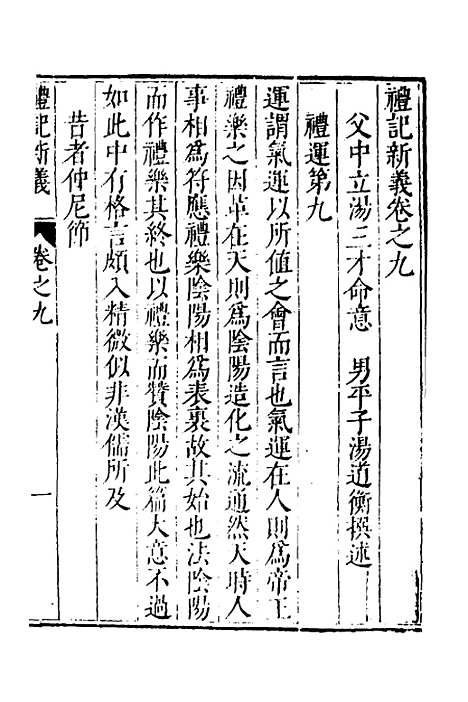 禮記新義卷之九
父中立湯三才命意　男平子湯道衡撰述
禮運第九
運謂氣運以所值之會而言也氣運在人則爲帝王
禮樂之因革在天則爲陰陽造化之流通然天時人
事相爲符應禮樂陰陽相爲表裏故其始也法陰陽
而作禮樂其終也以禮樂而贊陰陽此篇大意不過
如此中有格言頗入精微似非漢儒所及
昔者仲尼節
禮記新義
卷之九
一